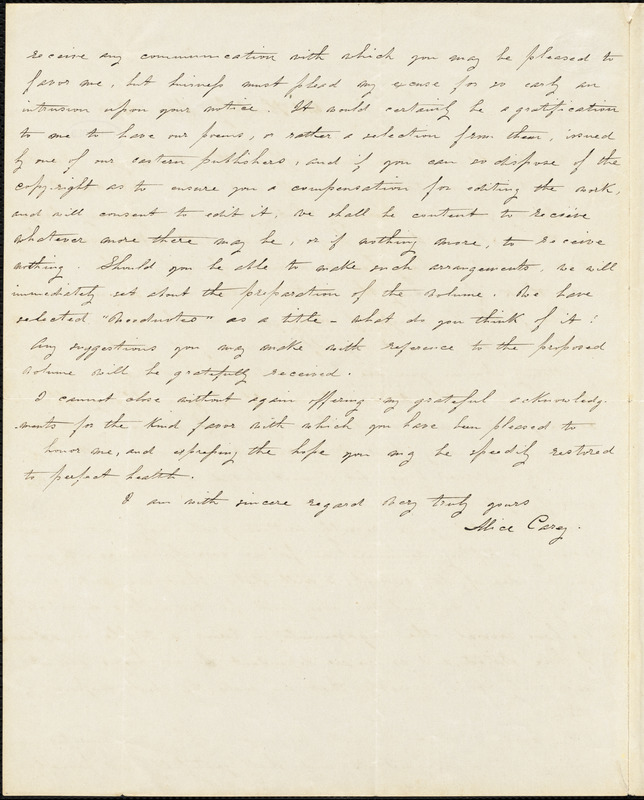 receive any communication with which you may be pleased to
favor me, but business must plead my excuse for so early an
intrusion upon your notice. It would certainly be a gratification
to me to have our poems, or rather a selection from them, issued
by one of our eastern publishers, and if you can so dispose of the
copy-right as to ensure you a compensation for editing the work,
and will consent to edit it, we shall be content to receive
whatever more there may be, or if nothing more, to receive
nothing. Should you be able to make such arrangements, we will
immediately set about the preparation of the volume. We have
selected "Woodnotes" as a title - what do you think of it?
Any suggestions you may make with reference to the proposed
volume will be gratefully received.
I cannot close without again offering my grateful acknowledg-
ments for the kind favor with which you have been pleased to
honor me, and expressing the hope you may be speedily restored
to perfect health.
I am with sincere regard very truly yours
Alice Carey.